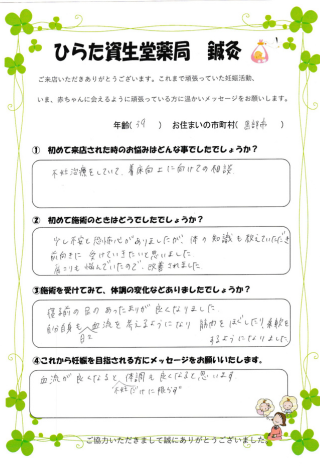 ひらた資生堂薬局 鍼灸
ご来店いただきありがとうございます。これまで頑張っていた妊娠活動、
いま、赤ちゃんに会えるように頑張っている方に温かいメッセージをお願いします。
年齢( 39 ) お住まいの市町村( )
① 初めて来店された時のお悩みはどんな事でしたでしょうか？
不妊治療をしていて、着床向上に向けての相談
② 初めて施術のときはどうでしたでしょうか？
少し不安と恐怖心がありましたが、体の知識も教えていただき
前向きに受けていきたいと思いました。
肩こりも悩んでいたので、改善されました
③施術を受けてみて、体調の変化などありましたでしょうか？
目の が良くなりました。
自身も血流を考えるようになり 筋肉をほぐしたり、柔軟を
するようになりました
④これから妊娠を目指される方にメッセージをお願いいたします。
血流が良くなると、体調も良くなると思います
不妊だけに限らず
ご協力いただきまして誠にありがとうございました